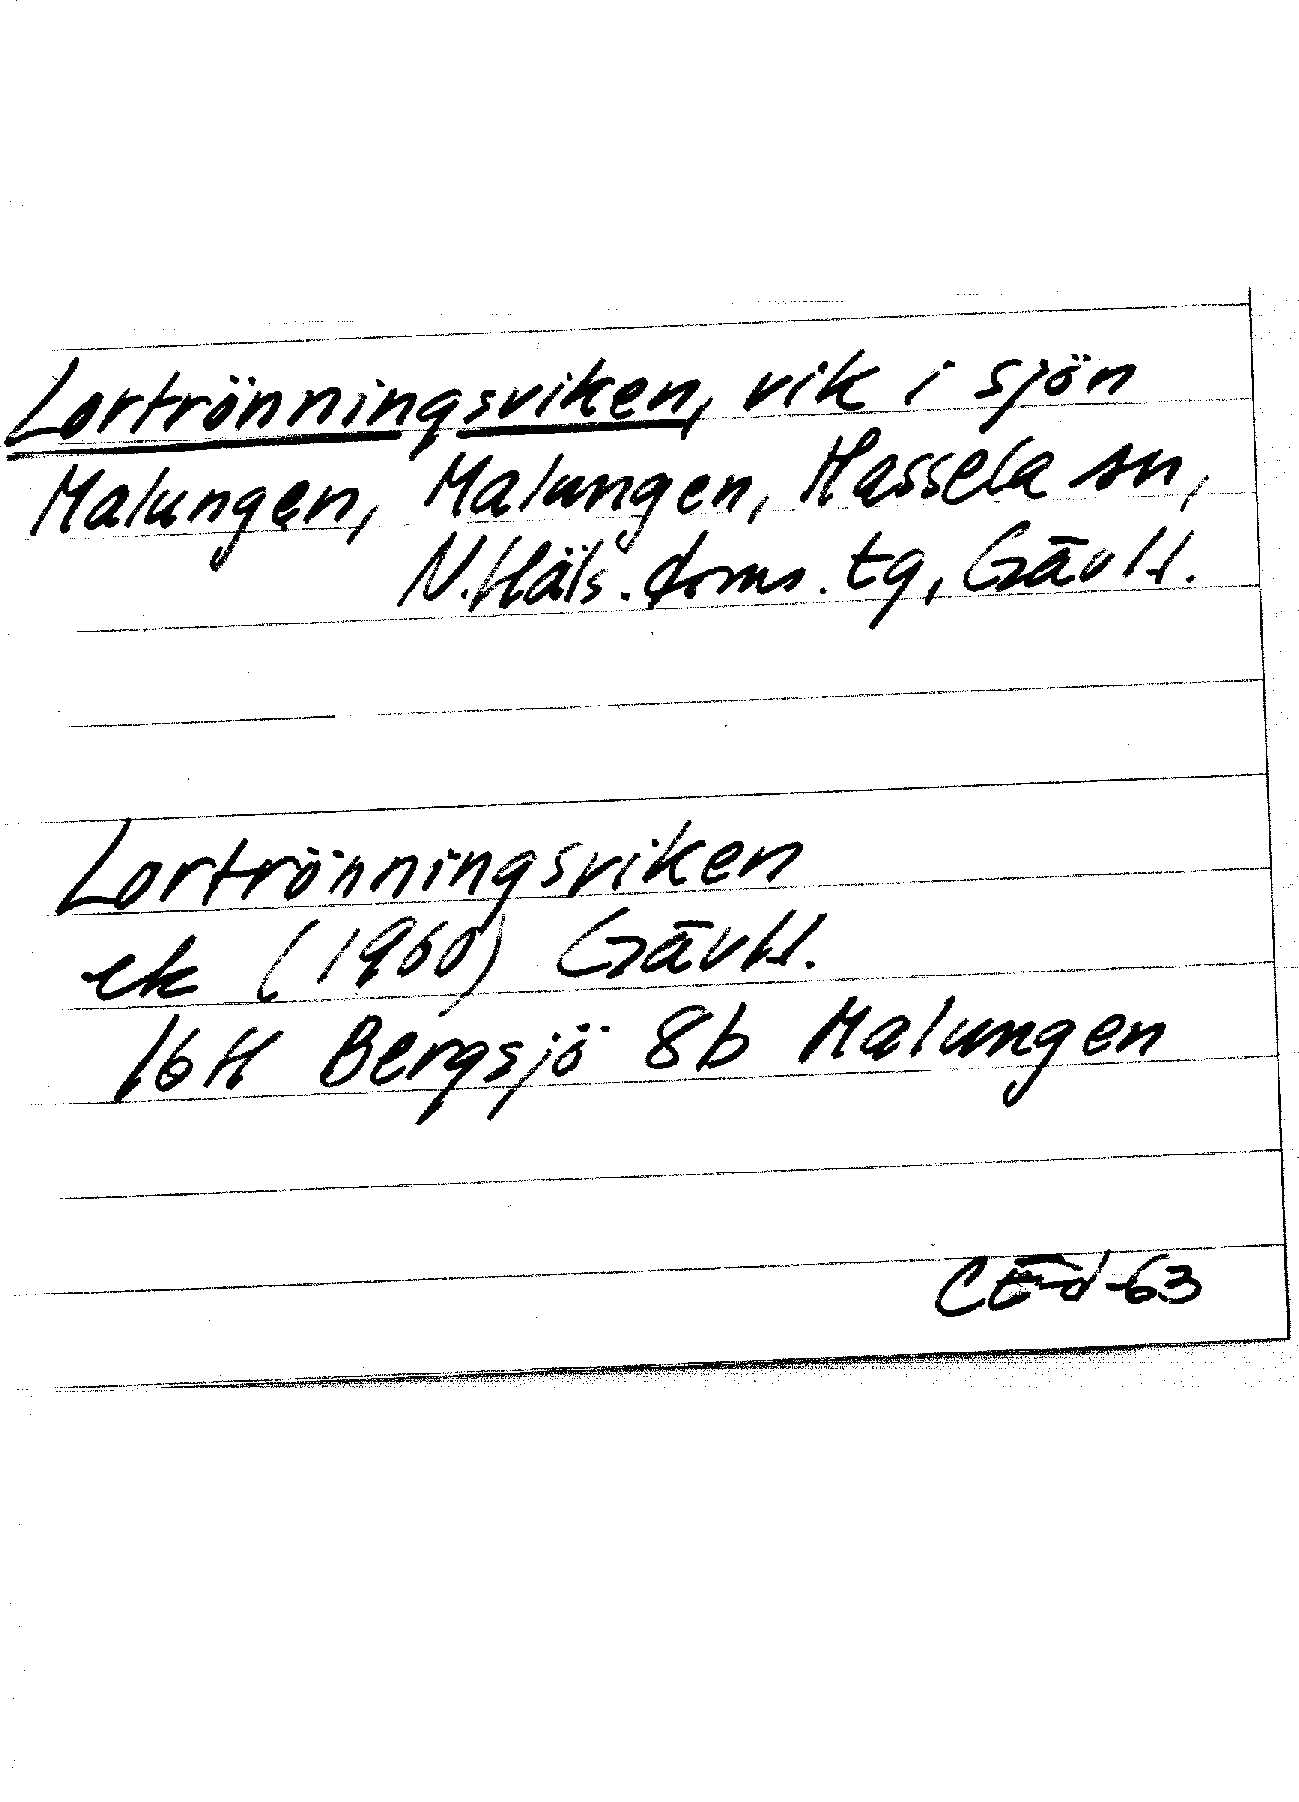 Lortrönningsviken, vik i sjön
Malungen, Malungen, Hassela sn,
N. Häls. doms. tg, Gävl.
Lortrönningsviken
ek (1960) Gävl.
16H Bergsjö 8b Malungen
CE-d -63